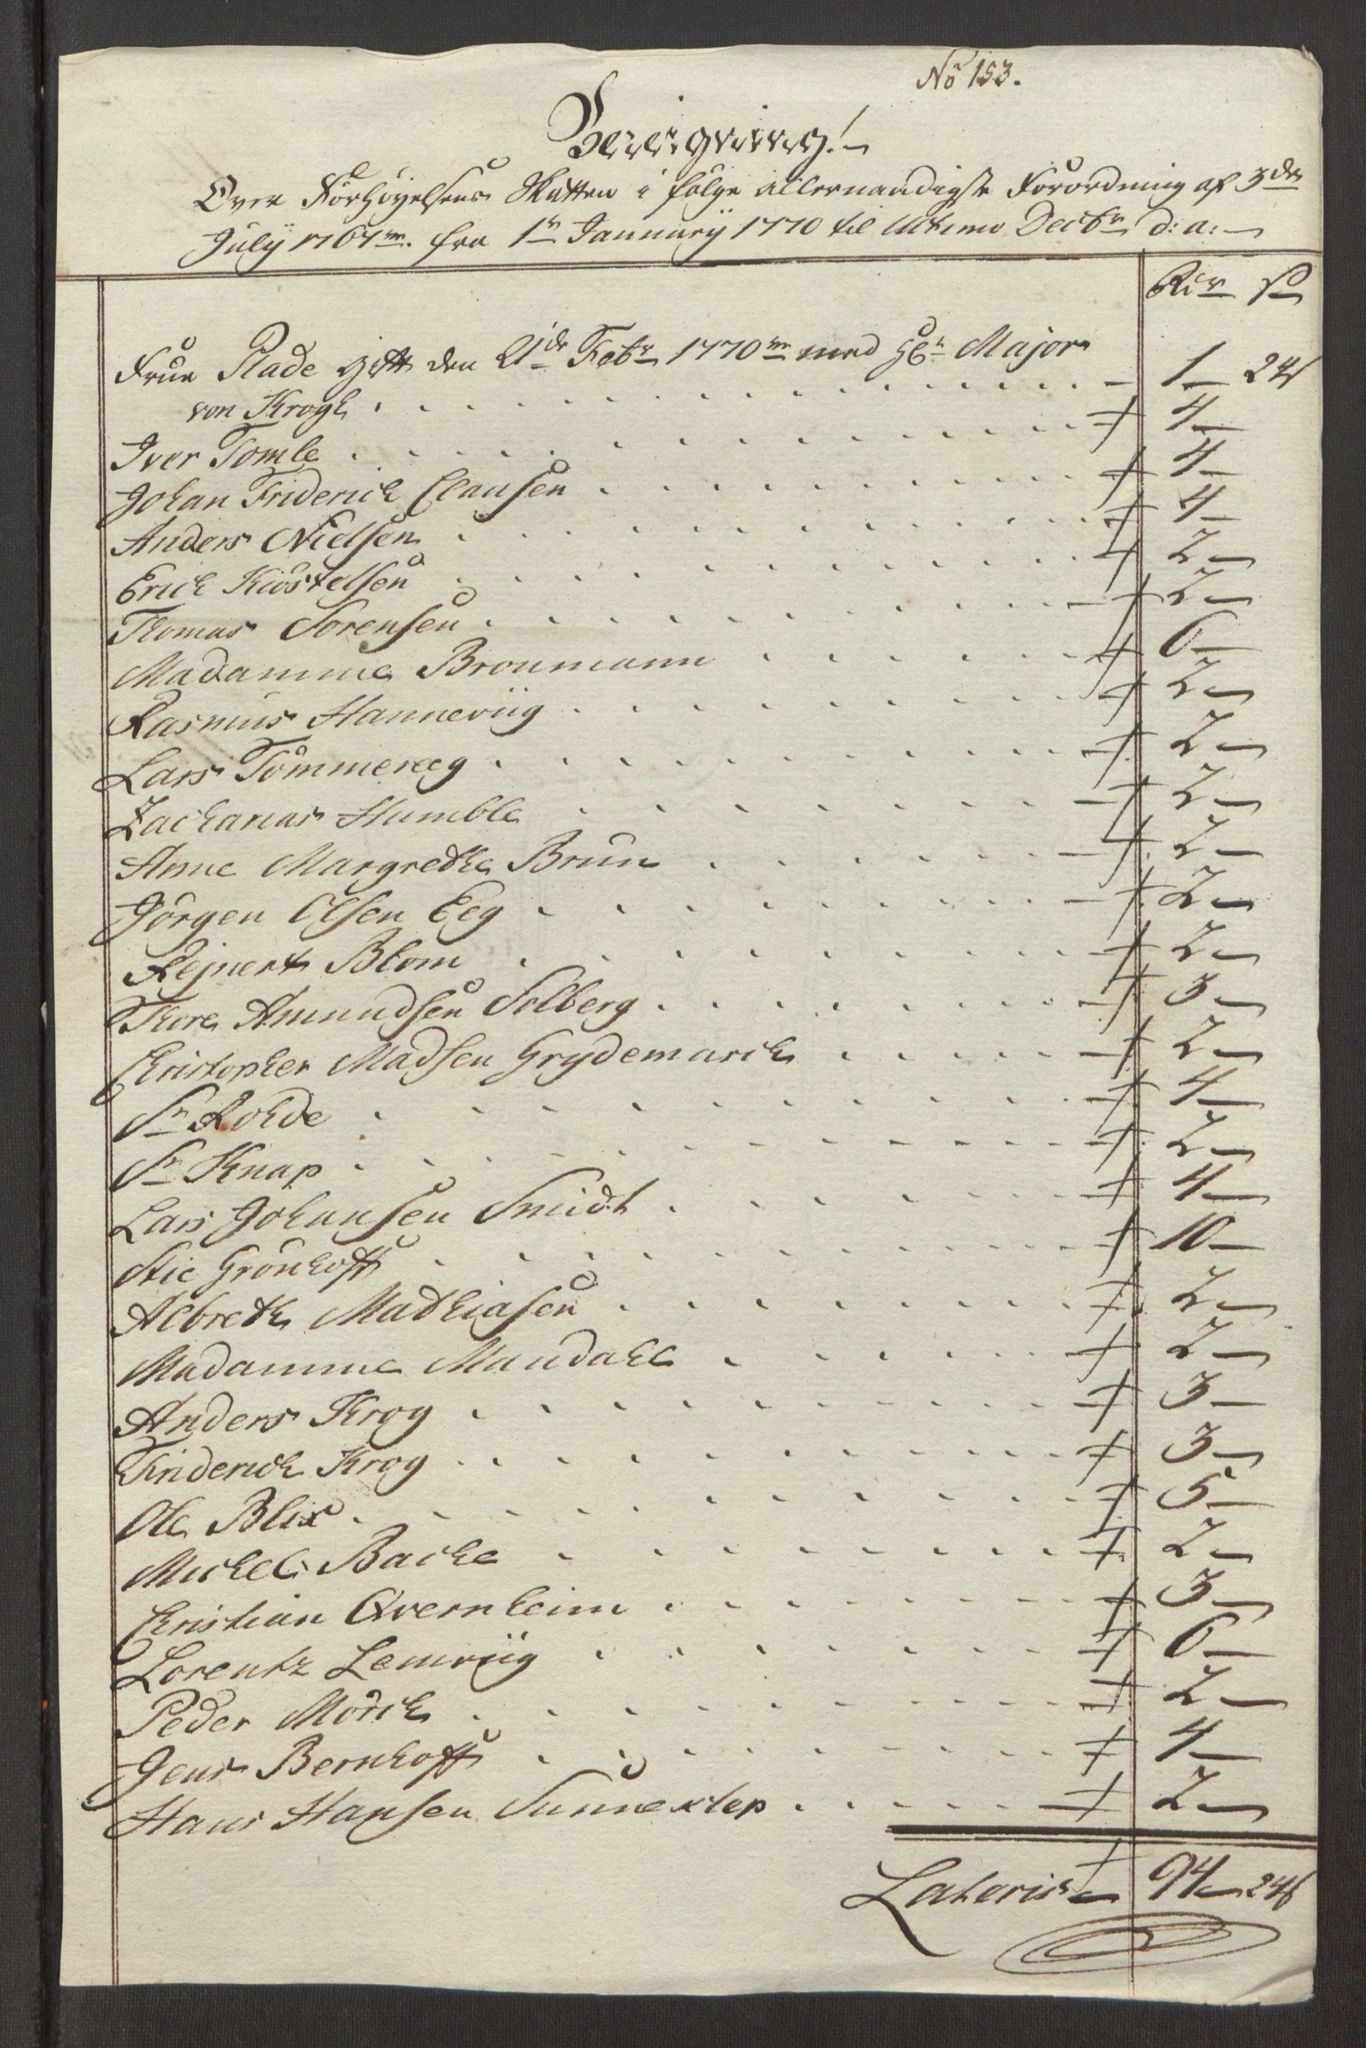 No 153.
Bereigning!
Over Forhøyelsens Skatten i følge allernaadigste Forordning af 3de
July 1767. fra 1te Januarij 1770 til Ultimo Decbr d: a:
Rdr s
Frue Plade gift den 21de Febr 1770 med Hr Major
von Krogh . . . 1 24s
Iver Tomle . . . 4
Johan Friderich Clausen . . . 4
Anders Nielsen . . . 4
Erich Kiøstelsen . . . 2
Thomas Sorensen . . . 2
Madamme Broumann . . . 6
Rasmus Hanneviig . . . 2
Lars Tømmereeg . . . 2
Zacharias Humble . . . 2
Anne Margrethe Brun . . . 2
Jørgen Olsen Eeg . . . 2
Rejnert Blom . . . 2
Thore Amundsen Solberg . . . 3
Christopher Madsen Grydemarch . . . 2
Sr Rohde . . . 4
Sr Knap . . . 2
Lars Johansen Smidt . . . 4
Stie Grønhoff . . . 10
Albreth Mathiasen . . . 2
Madamme Mandahl . . . 2
Anders Krog . . . 3
Friderich Krog . . . 3
Ole Blix . . . 5
Michel Bache . . . 2
Christian Qvernheim . . . 3
Lorentz Lemviig . . . 6
Peder Mørch . . . 2
Jens Bernhoff . . . 4
Hans Hansen Sunneklep . . . 2
Lateris 94 24s